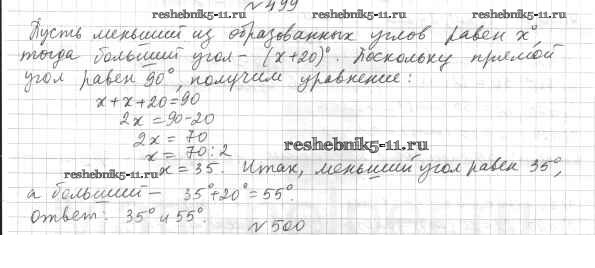 №499
reshebnik5-11.ru
reshebnik5-11.ru
Пусть меньший из образованных углов равен x°,
тогда больший угол - (x+20)°. Поскольку прямой
угол равен 90°, получим уравнение:
x+x+20=90
2x=90-20
2x=70
x=70:2
reshebnik5-11.ru
reshebnik5-11.ru
x=35. Итак, меньший угол равен 35°,
а больший - 35°+20°=55°.
ответ: 35° и 55°.
№500
reshebnik5-11.ru
reshebnik5-11.ru